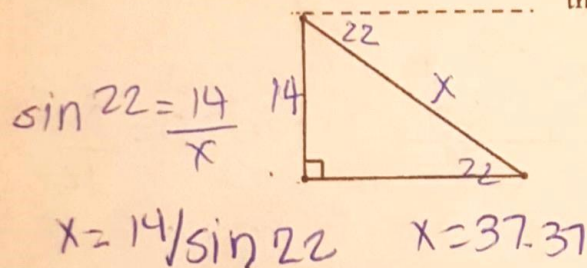 22
sin 22 = 14/x
14
x
22
x = 14/sin 22
x = 37.37